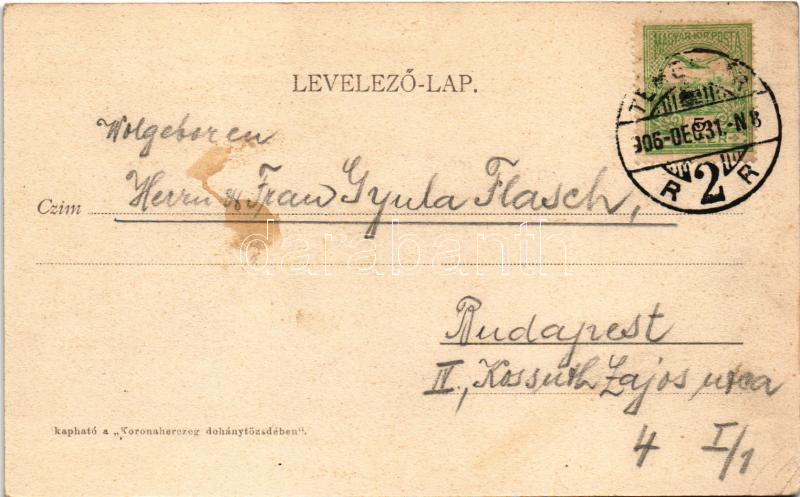 LEVELEZŐ-LAP.
MAGYAR KIR. POSTA
906-DEC 31.-N8
R 2 R
Wolgeboren
Herrn & Frau Gyula Flasch,
Czim
darabanth
Budapest
IV., Kossuth Lajos utca
4 I/1
kapható a „Koronaherczeg dohánytőzsdében“.